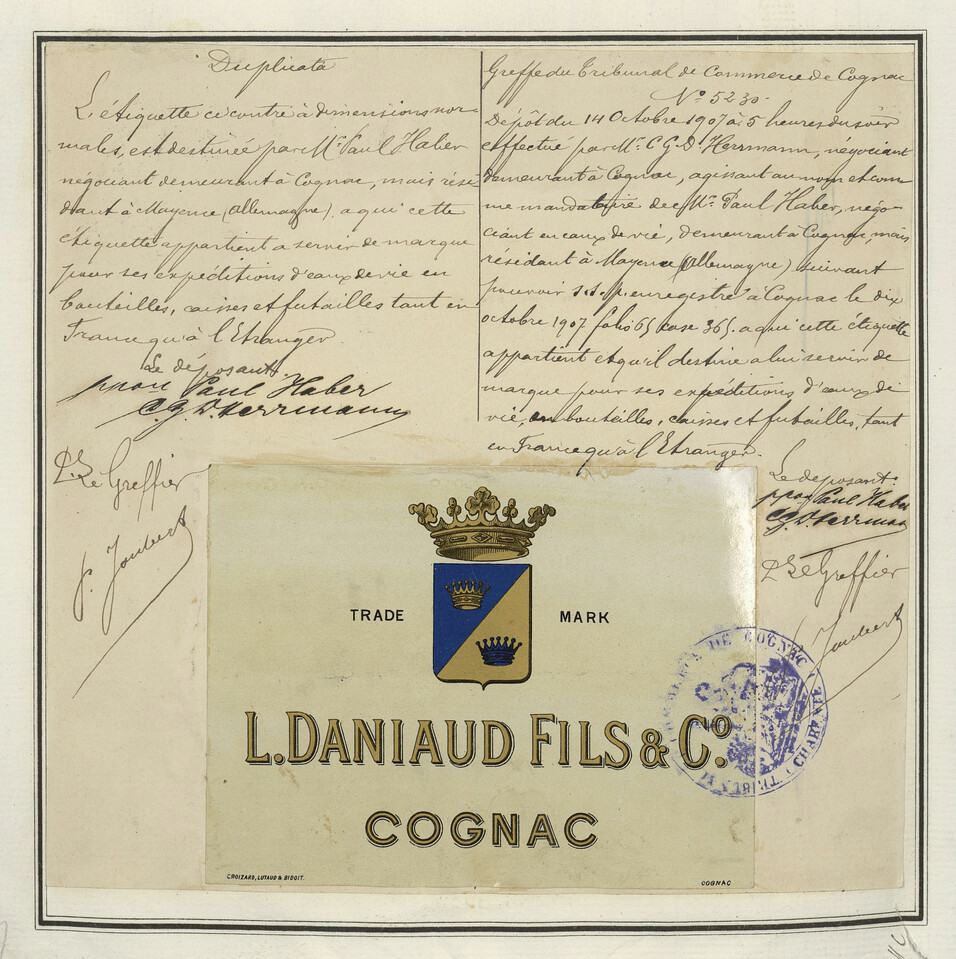 Duplicata
L'étiquette ci contre à dimensions nor-
males, est destinée par Mr. Paul Haber
négociant demeurant à Cognac, mais rési-
dant à Mayence (Allemagne) a qui cette
étiquette appartient a servir de marque
pour ses expéditions d'eaux de vie en
bouteilles, caisses et futailles tant en
France qu'à l'Etranger
Le déposant
ppon Paul Haber
C.G.D. Herrmann
Le Greffier
Joubert
Greffe du Tribunal de Commerce de Cognac
No. 5230.
Dépôt du 14 Octobre 1907 à 5 heures du soir
effectué par Mr. C G. D. Herrmann, négociant
demeurant à Cognac, agissant au nom et com
me mandataire de Mr. Paul Haber, négo-
ciant en eaux de vié, demeurant à Cognac, mais
résidant à Mayence (Allemagne) suivant
pouvoir s.s.p. enregistré à Cognac le dix
octobre 1907 folio 65 case 365. a qui cette étiquette
appartient et qu'il destine a lui servir de
marque pour ses expéditions d'eaux de
vié, en bouteilles, caisses et futailles, tant
en France qu'à l'Etranger.
Le deposant:
ppon Paul Haber
C.G.D. Herrman
Le Greffier
Joubert
TRADE MARK
L. DANIAUD FILS & Co.
COGNAC
CROIZARD, LUTAUD & BIDOIT.
COGNAC
DE COGNAC